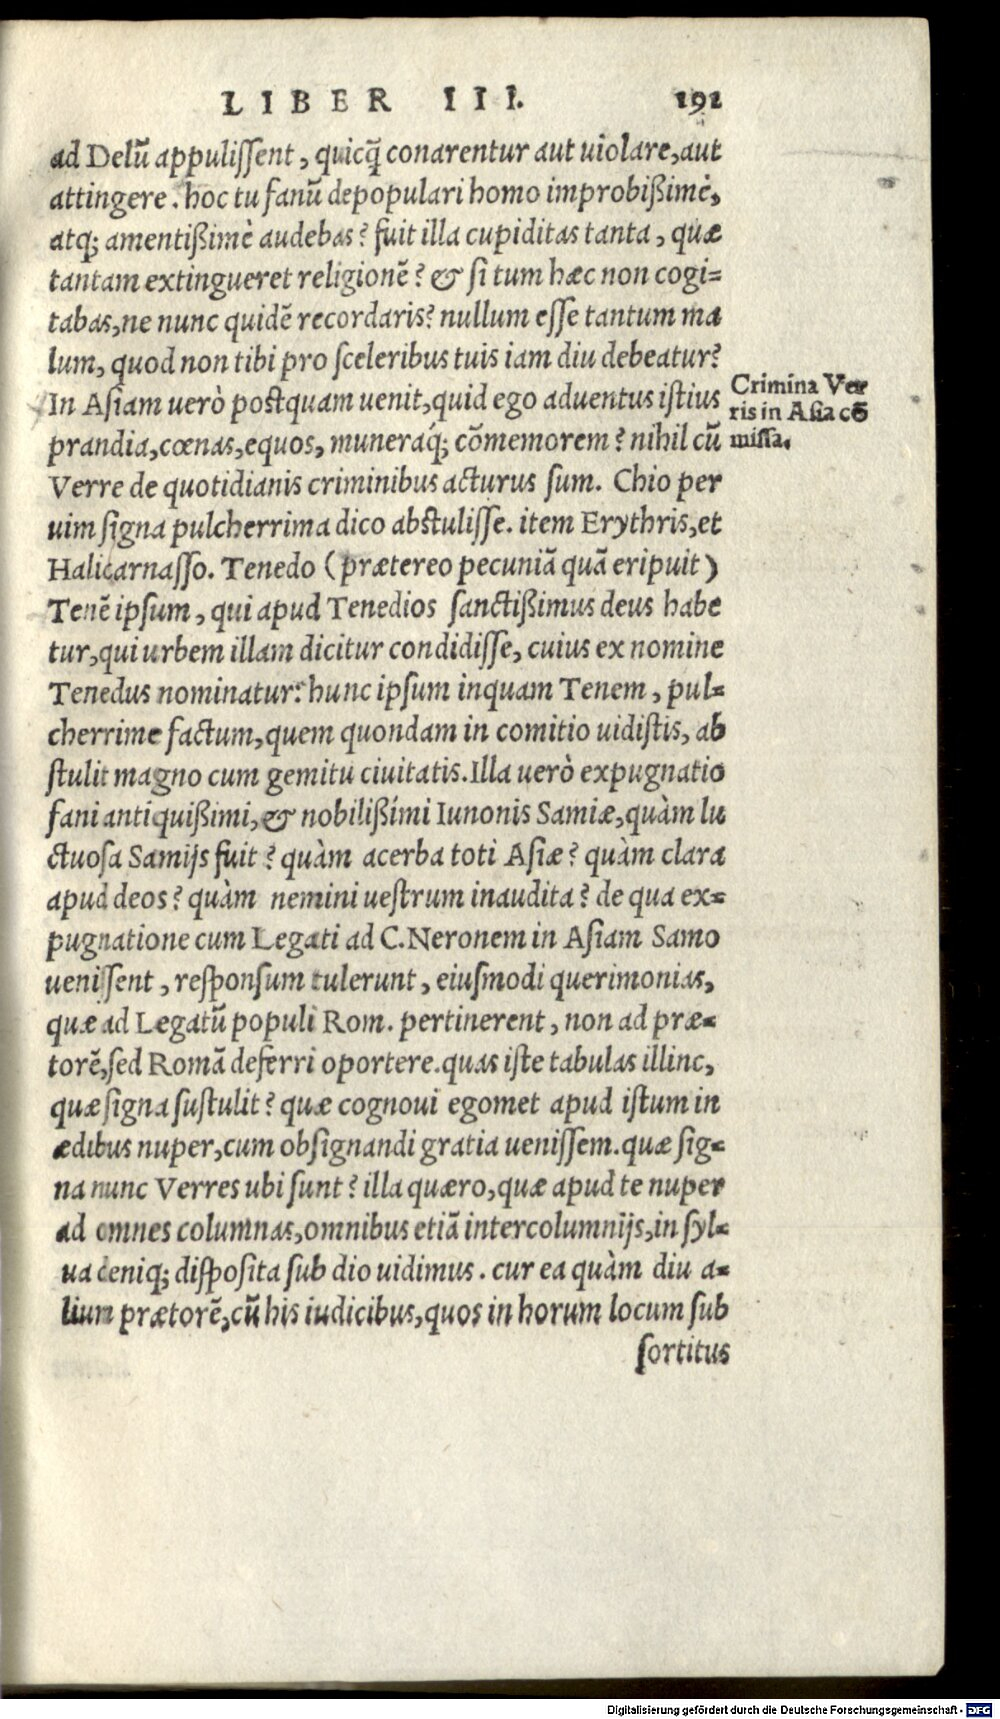 LIBER III. 191
ad Delũ appuliſſent, quicq̃ conarentur aut uiolare, aut
attingere. hoc tu fanũ depopulari homo improbißimè,
atq; amentißimè audebas? fuit illa cupiditas tanta, quæ
tantam extingueret religionẽ? & ſi tum hæc non cogi=
tabas, ne nunc quidẽ recordaris? nullum eſſe tantum ma
lum, quod non tibi pro ſceleribus tuis iam diu debeatur?
In Aſiam uerò poſtquam uenit, quid ego aduentus iſtius
prandia, cœnas, equos, muneraq́; cõmemorem? nihil cũ
Verre de quotidianis criminibus acturus ſum. Chio per
uim ſigna pulcherrima dico abſtuliſſe. item Erythris, et
Halicarnaſſo. Tenedo (prætereo pecuniã quã eripuit)
Tenẽ ipſum, qui apud Tenedios ſanctißimus deus habe
tur, qui urbem illam dicitur condidiſſe, cuius ex nomine
Tenedus nominatur: hunc ipſum inquam Tenem, pul=
cherrime factum, quem quondam in comitio uidiſtis, ab
ſtulit magno cum gemitu ciuitatis. Illa uerò expugnatio
fani antiquißimi, & nobilißimi Iunonis Samiæ, quàm lu
ctuoſa Samijs fuit? quàm acerba toti Aſiæ? quàm clara
apud deos? quàm nemini ueſtrum inaudita? de qua ex=
pugnatione cum Legati ad C. Neronem in Aſiam Samo
ueniſſent, reſponſum tulerunt, eiuſmodi querimonias,
quæ ad Legatũ populi Rom. pertinerent, non ad præ=
torẽ, ſed Romã deferri oportere. quas iſte tabulas illinc,
quæ ſigna ſuſtulit? quæ cognoui egomet apud iſtum in
ædibus nuper, cum obſignandi gratia ueniſſem. quæ ſig=
na nunc Verres ubi ſunt? illa quæro, quæ apud te nuper
ad omnes columnas, omnibus etiã intercolumnijs, in ſyl=
ua deniq; diſpoſita ſub dio uidimus. cur ea quàm diu a=
lium prætorẽ, cũ his iudicibus, quos in horum locum ſub
ſortitus
Crimina Ver
ris in Aſia cõ
miſſa.
Digitalisierung gefördert durch die Deutsche Forschungsgemeinschaft - DFG